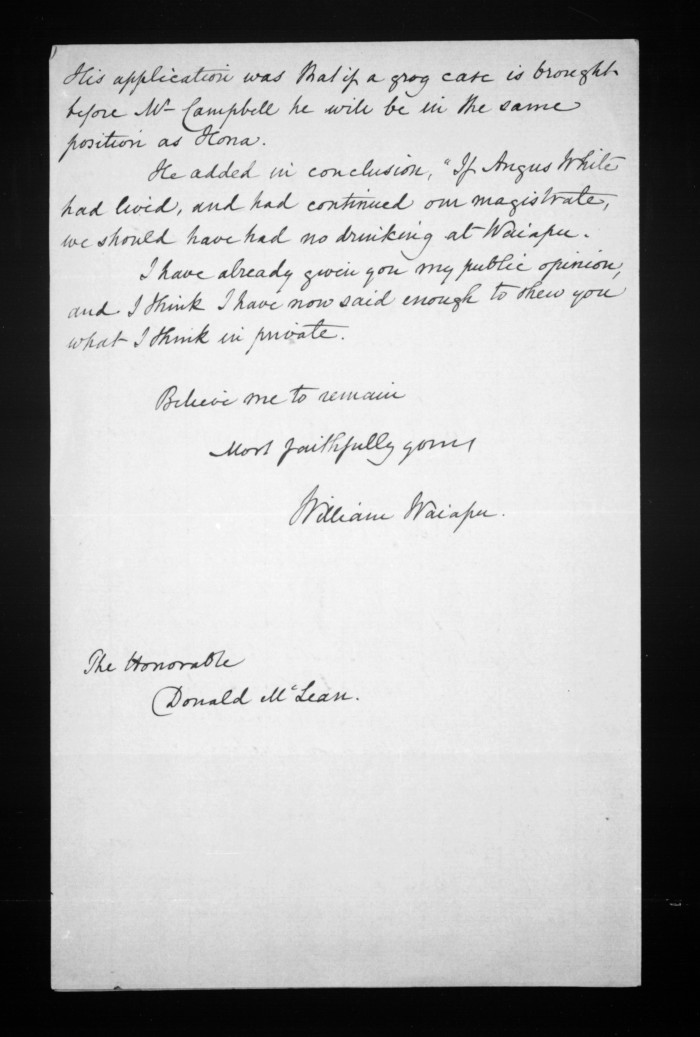 His application was that if a grog case is brought
before Mr Campbell he will be in the same
position as Hona.
He added in conclusion, "If Angus White
had lived, and had continued our magistrate,
we should have had no drinking at Waiapu.
I have already given you my public opinion,
and I think I have now said enough to shew you
what I think in private.
Believe me to remain
Most faithfully yours
William Waiapu.
The Honorable
Donald McLean.